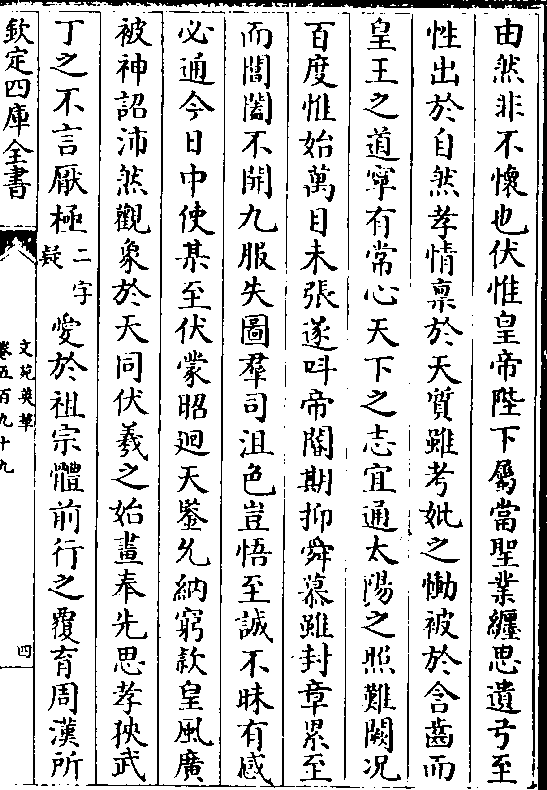 由然非不懷也伏惟皇帝陛下屬當聖業纏思遺弓至
性出於自然孝情禀於天質雖考妣之慟被於含齒而
皇王之道寧有常心天下之志宜通太陽之照難闕况
百度惟始萬目未張遂叫帝閽期抑舜慕雖封章累至
而閶闔不開九服失圖羣司沮色豈悟至誠不昧有感
必通今日中使某至伏蒙昭迴天鑒允納窮欵皇風廣
被神詔沛然觀象於天同伏羲之始畫奉先思孝殃武
丁之不言厭極二字疑愛於祖宗體前行之覆育周漢所
欽定四庫全書
文苑英華
卷五百九十九
四